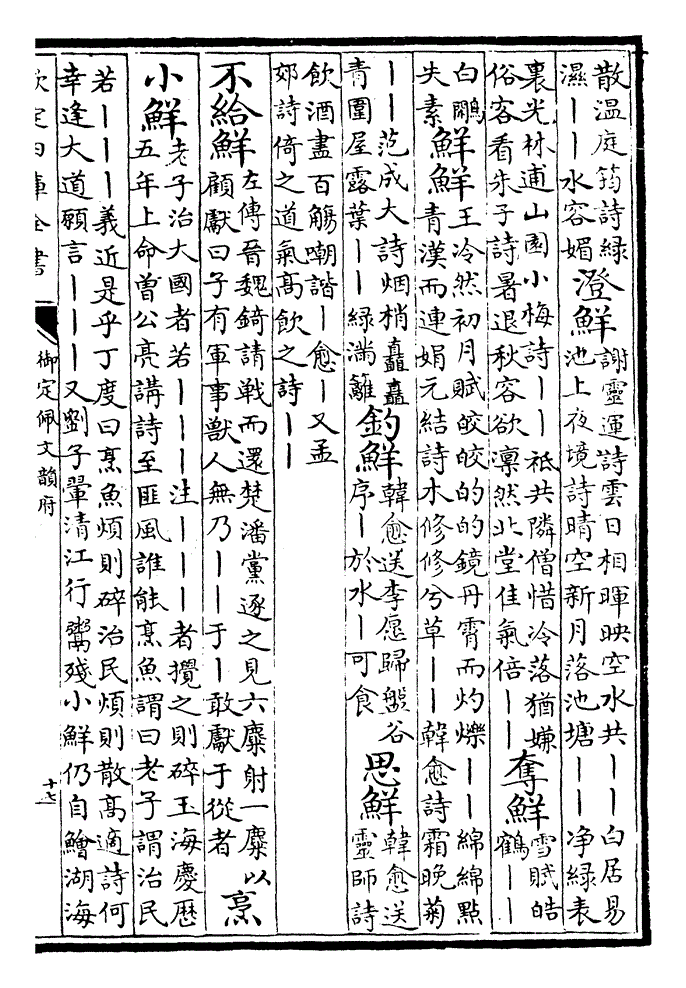 散温庭筠詩緑
濕丨丨水容媚
澄鮮
謝靈運詩雲日相暉映空水共丨丨白居易
池上夜境詩晴空新月落池塘丨丨净緑表
裏光林逋山園小梅詩丨丨祗共隣僧惜冷落猶嫌
俗客看朱子詩暑退秋容欲凛然北堂佳氣倍丨丨
奪鮮
雪賦皓
鶴丨丨
白鷴
失素
鮮鮮
王泠然初月賦皎皎的的鏡丹霄而灼爍丨丨綿綿點
青漢而連娟元結詩水修修兮草丨丨韓愈詩霜晚菊
丨丨范成大詩烟梢矗矗
青圍屋露葉丨丨緑滿籬
釣鮮
韓愈送李愿歸盤谷
序丨於水丨可食
思鮮
韓愈送
靈師詩
飲酒盡百觴嘲諧丨愈丨又孟
郊詩倚之道氣髙飲之詩丨丨
不給鮮
左傳晉魏錡請戰而還楚潘黨逐之見六麋射一麋以
顧獻曰子有軍事獸人無乃丨丨于丨敢獻于從者
烹
小鮮
老子治大國者若丨丨丨注丨丨丨者攪之則碎玉海慶厯
五年上命曾公亮講詩至匪風誰能烹魚謂曰老子謂治民
若丨丨丨義近是乎丁度曰烹魚煩則碎治民煩則散髙適詩何
幸逢大道願言丨丨丨又劉子翬清江行鬻殘小鮮仍自鱠湖海
欽定四庫全書
御定佩文韻府
十七